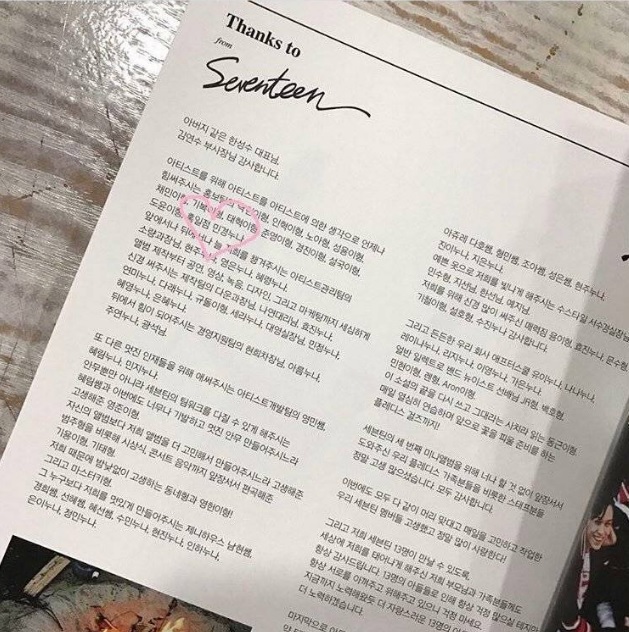 Thanks to
from
Seventeen
아버지 같은 한성수 대표님,
김연수 부사장님 감사합니다.
아티스트를 위해 아티스트를 아티스트에 의한 생각으로 언제나
힘써주시는 홍보팀의 인혁이형, 노아형, 성윤이형,
채민이 기복이형, 태혁이형, 준영이형, 경진이형, 설국이형,
도윤이형, 홍일점 민경누나,
앞에서나 뒤에서나 늘 저희를 챙겨주시는 아티스트관리팀의
소량과장님, 현주누나, 영은누나, 혜령누나,
앨범 제작부터 공연, 영상, 녹음, 디자인, 그리고 마케팅까지 세심하게
신경 써주시는 제작팀의 다운과장님, 나연대리님, 효진누나,
연미누나, 다래누나, 규돌이형, 세라누나, 대영실장님, 민정누나,
혜경누나, 은혜누나,
뒤에서 힘이 되어주시는 경영지원팀의 현희차장님, 아름누나,
주연누나, 광석님,
또 다른 멋진 인재들을 위해 애써주시는 아티스트개발팀의 영민쌤,
혜림누나, 민지누나,
안무뿐만 아니라 세븐틴의 팀워크를 다질 수 있게 해주시는
혜림쌤과 이번에도 너무나 기발하고 멋진 안무 만들어주시느라
고생해준 영준이형,
자신의 앨범보다 저희 앨범을 더 고민해서 만들어주시느라 고생해준
범주형을 비롯해 시상식, 콘서트 음악까지 앞장서서 편곡해준
기용이형, 기태형,
저희 때문에 밤낮없이 고생하는 동네형과 영한이형!
그리고 마스터키형,
그 누구보다 저희를 멋있게 만들어주시는 제니하우스 남현쌤,
경희쌤, 선혜쌤, 혜선쌤, 수민누나, 현진누나, 인하누나,
은이누나, 정민누나,
아쥬레 다호쌤, 형민쌤, 조아쌤, 성은쌤, 현주누나,
진이누나, 지은누나,
예쁜 옷으로 저희를 빛나게 해주시는 수스타일 서수경실장님,
민수형, 지선님, 한선님, 예지님,
저희를 위해 신경 많이 써주신 매력찜 용이형, 효진누나, 문수형,
기철이형, 설호형, 수진누나 감사합니다.
그리고 든든한 우리 회사 애프터스쿨 유아누나, 나나누나,
레이나누나, 리지누나, 이영누나, 가은누나,
일반 일렉트로 밴드 뉴이스트 선배님 JR형, 백호형,
민현이형, 렌형, Aron이형,
이 소설의 끝을 다시 쓰고 그대라는 사치라 읽는 동근이형,
매일 열심히 연습하며 앞으로 꽃을 피울 준비를 하는
플레디스 걸즈까지!
세븐틴의 세 번째 미니앨범을 위해 너나 할 것 없이 앞장서서
도와주신 우리 플레디스 가족분들을 비롯한 스태프분들
정말 고생 많으셨습니다. 모두 감사합니다.
이번에도 모두 다 같이 머리 맞대고 매일을 고민하고 작업한
우리 세븐틴 멤버들 고생했고 정말 많이 사랑한다!
그리고 저희 세븐틴 13명이 만날 수 있도록,
세상에 저희를 태어나게 해주신 저희 부모님과 가족분들께도
항상 감사드립니다. 13명의 아들들로 인해 항상 걱정 많으실 텐데
항상 서로를 아껴주고 위해주고 있으니 걱정 마세요.
지금까지 노력해왔듯 더 자랑스러운 13명의
더 노력하겠습니다.
마지막으로